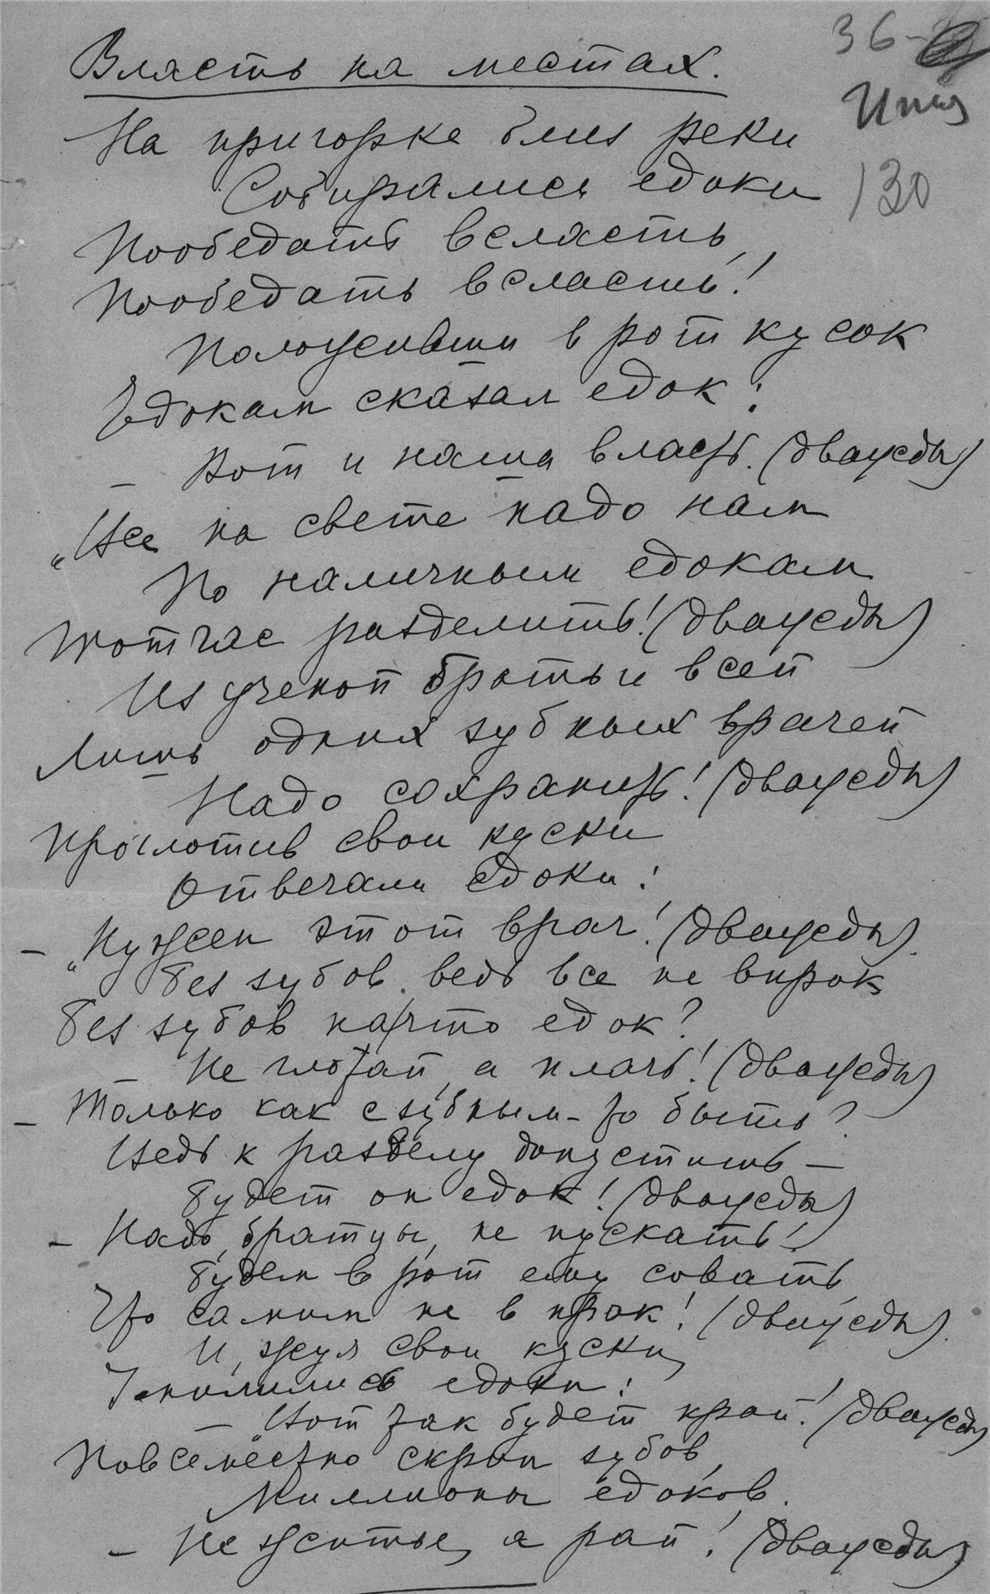 36-
130
Власть на местах.
На пригорке близ реки
Собирались едоки
Пообедать всласть,
Пообедать всласть!
Положивши в рот кусок
Едокам сказал едок:
– Вот и наша власть. (дважды)
"Все на свете надо нам
По наличным едокам
Тотчас разделить! (дважды)
Из ученой братьи всей
Лишь одних зубных врачей
Надо сохранить! (дважды)
Проглотив свои куски
Отвечали едоки:
– "Нужен этот врач! (дважды).
Без зубов ведь все не впрок
Без зубов на что едок?
Не глотай, а плачь! (дважды)
– Только как с зубным-то быть?
Ведь к разделу допустить –
Будет он едок! (дважды)
– Надо, братцы, не пускать!
Будем в рот ему совать,
Что самим не в прок! (дважды).
И, жуя свои куски,
едоки:
– "Вот так будет край! (дважды)
Повсеместно скрип зубов,
Миллионы едоков.
– Не житье, а рай! (дважды)